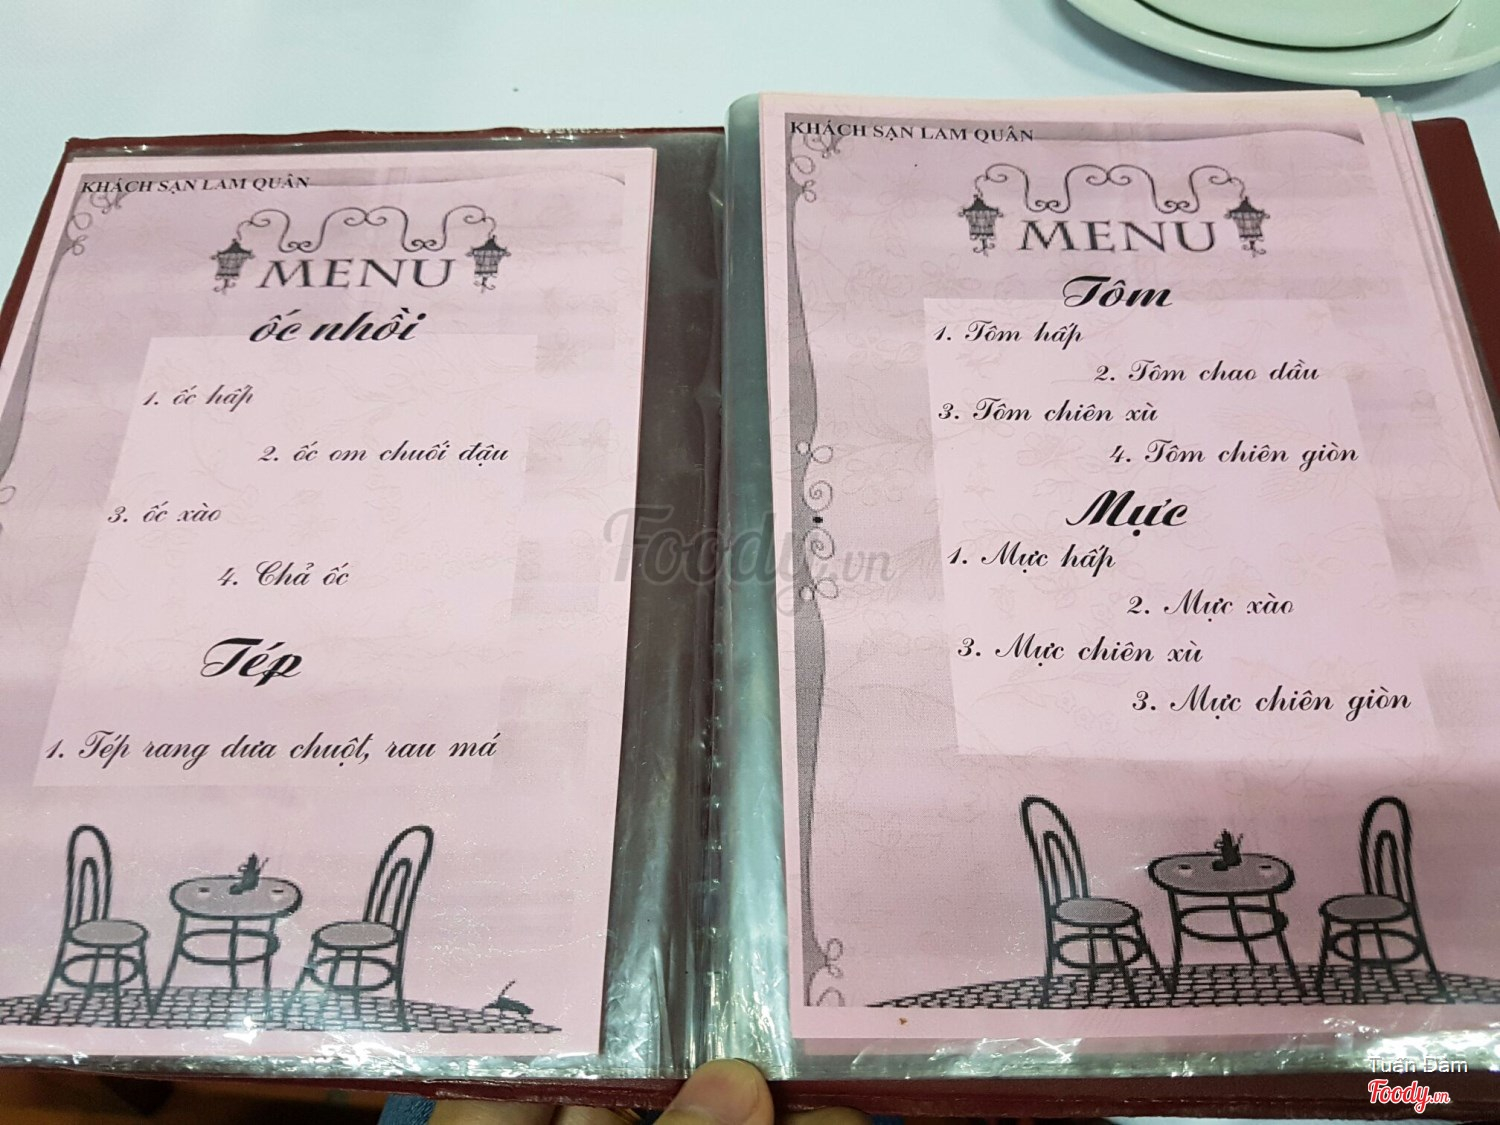 KHÁCH SẠN LAM QUÂN
MENU
ốc nhồi
1. ốc hấp
2. ốc om chuối đậu
3. ốc xào
4. Chả ốc
Tép
1. Tép rang dưa chuột, rau má
KHÁCH SẠN LAM QUÂN
MENU
Tôm
1. Tôm hấp
2. Tôm chao dầu
3. Tôm chiên xù
4. Tôm chiên giòn
Mực
1. Mực hấp
2. Mực xào
3. Mực chiên xù
3. Mực chiên giòn
Foody.vn
Tuấn Đàm
Foody.vn